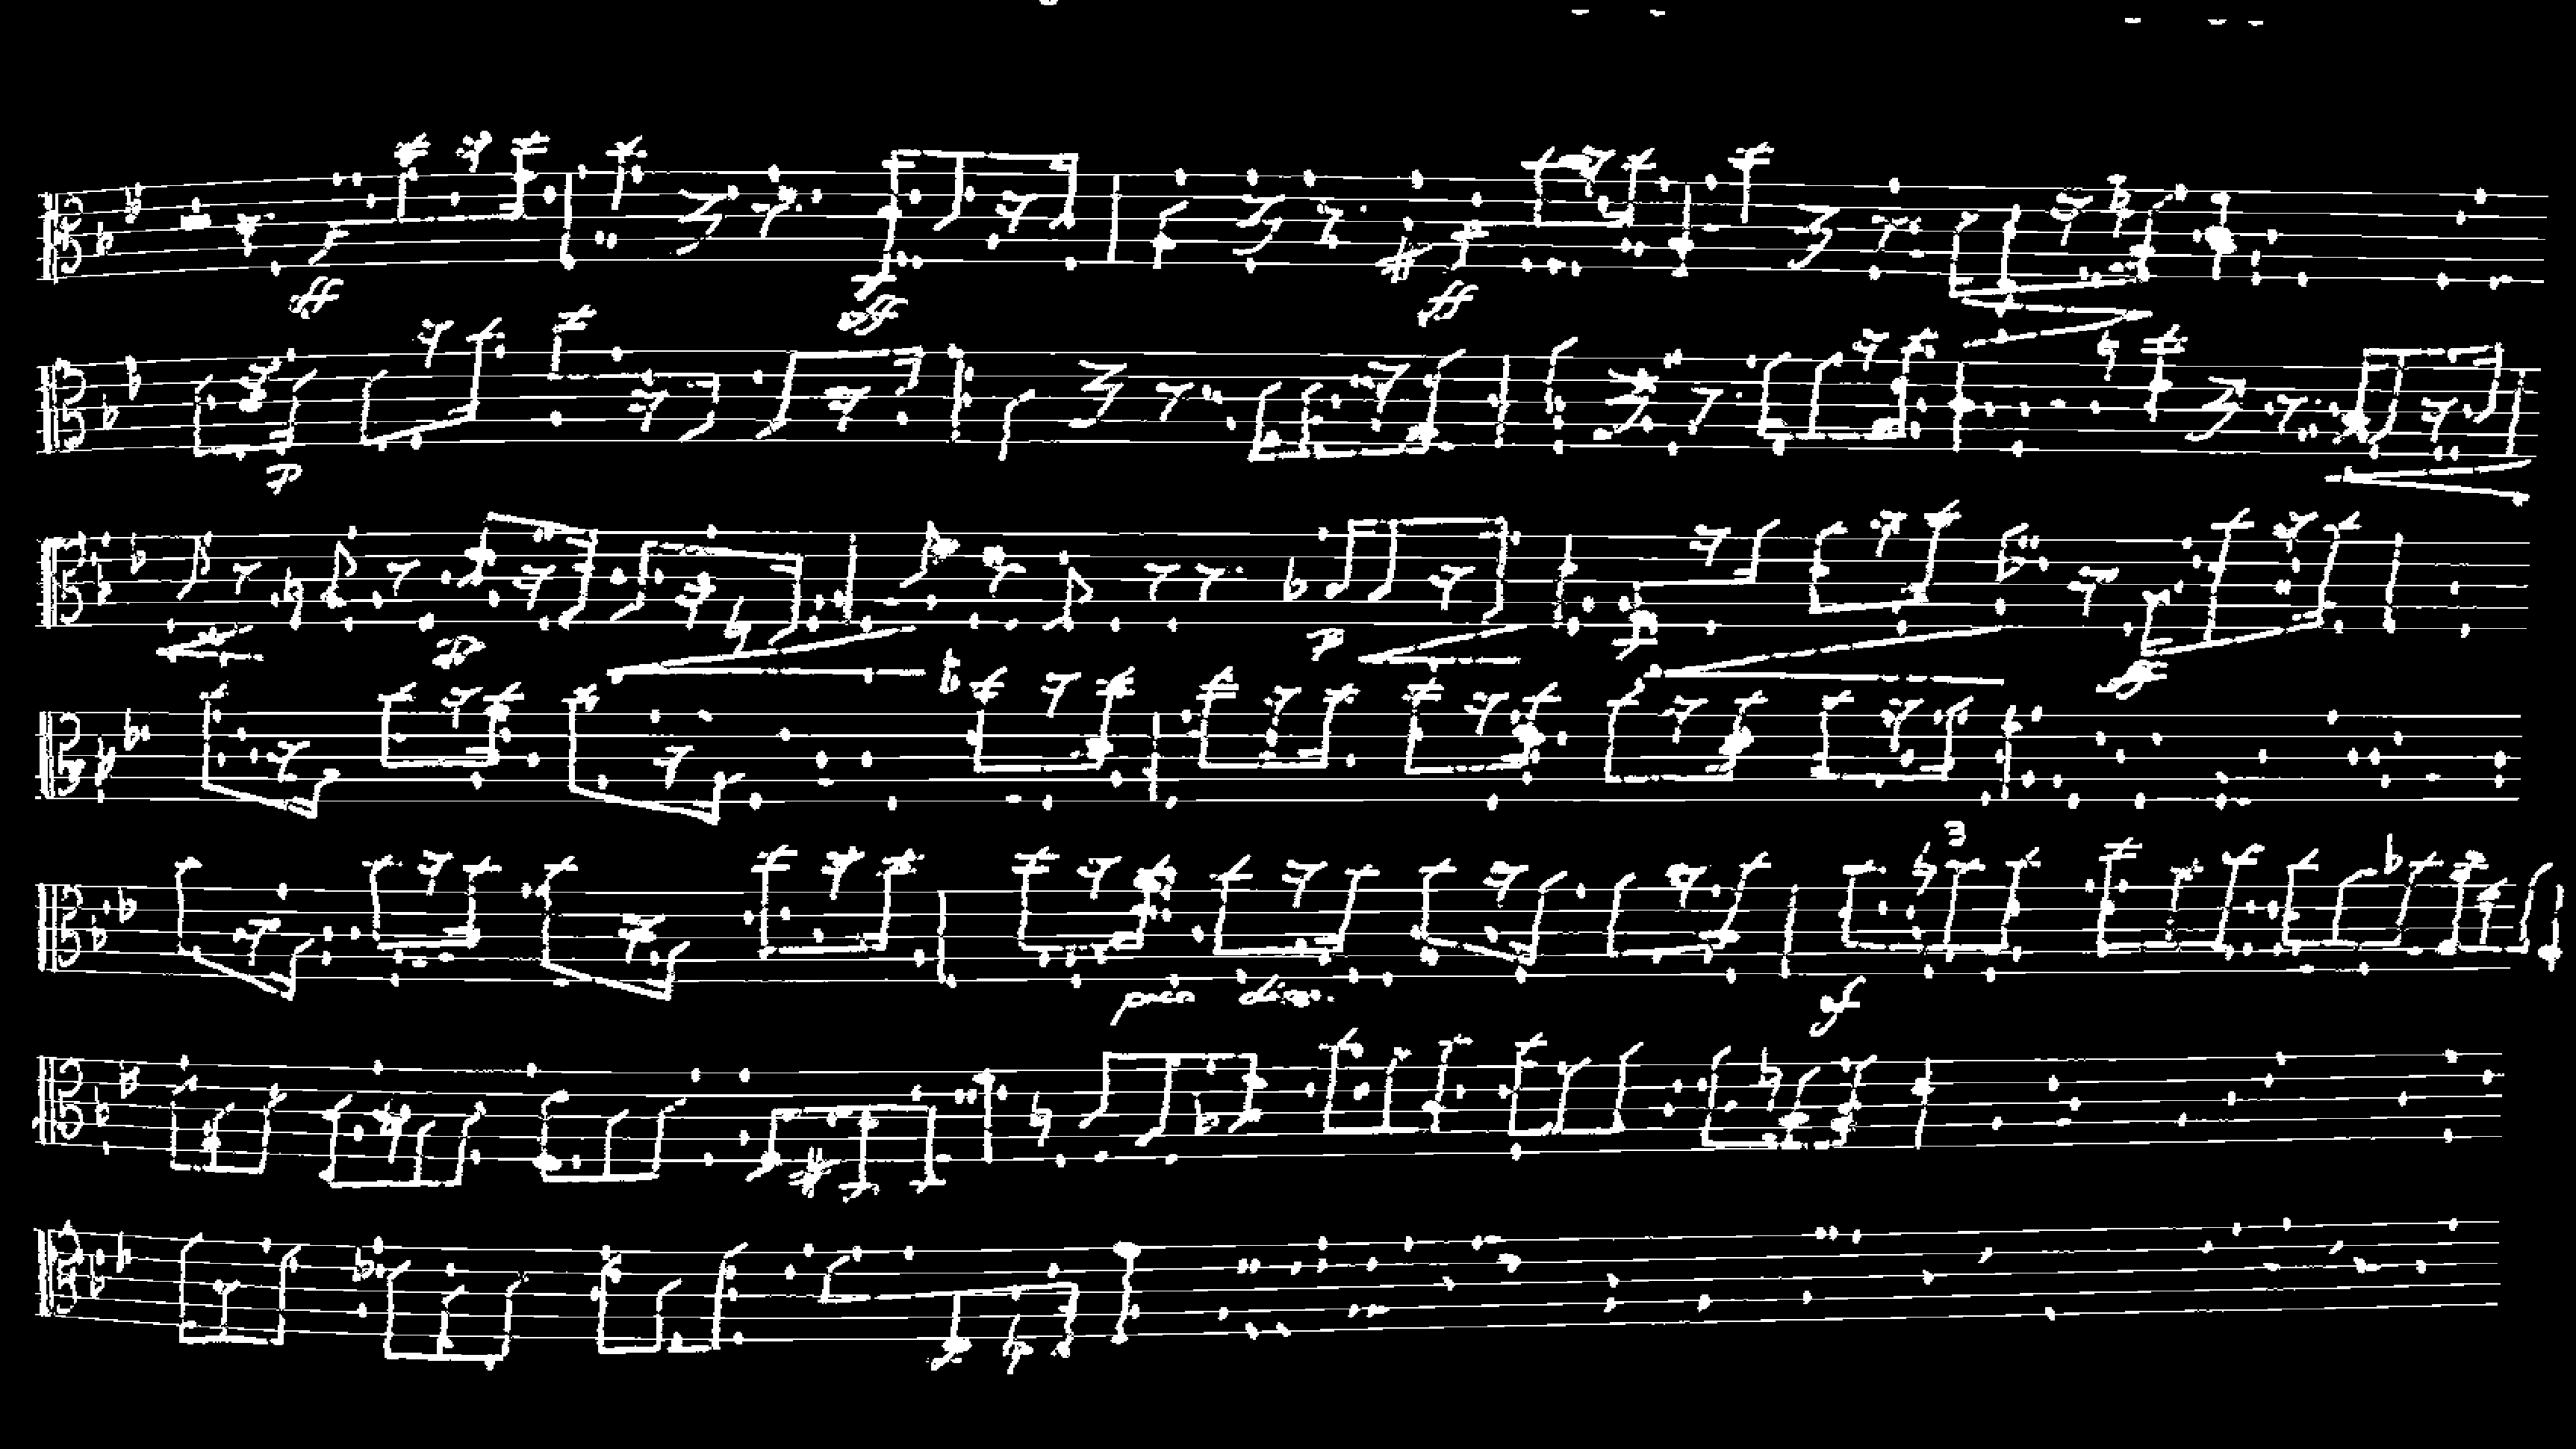 ff ff ff
p
p p ff
3
poco dim. sf